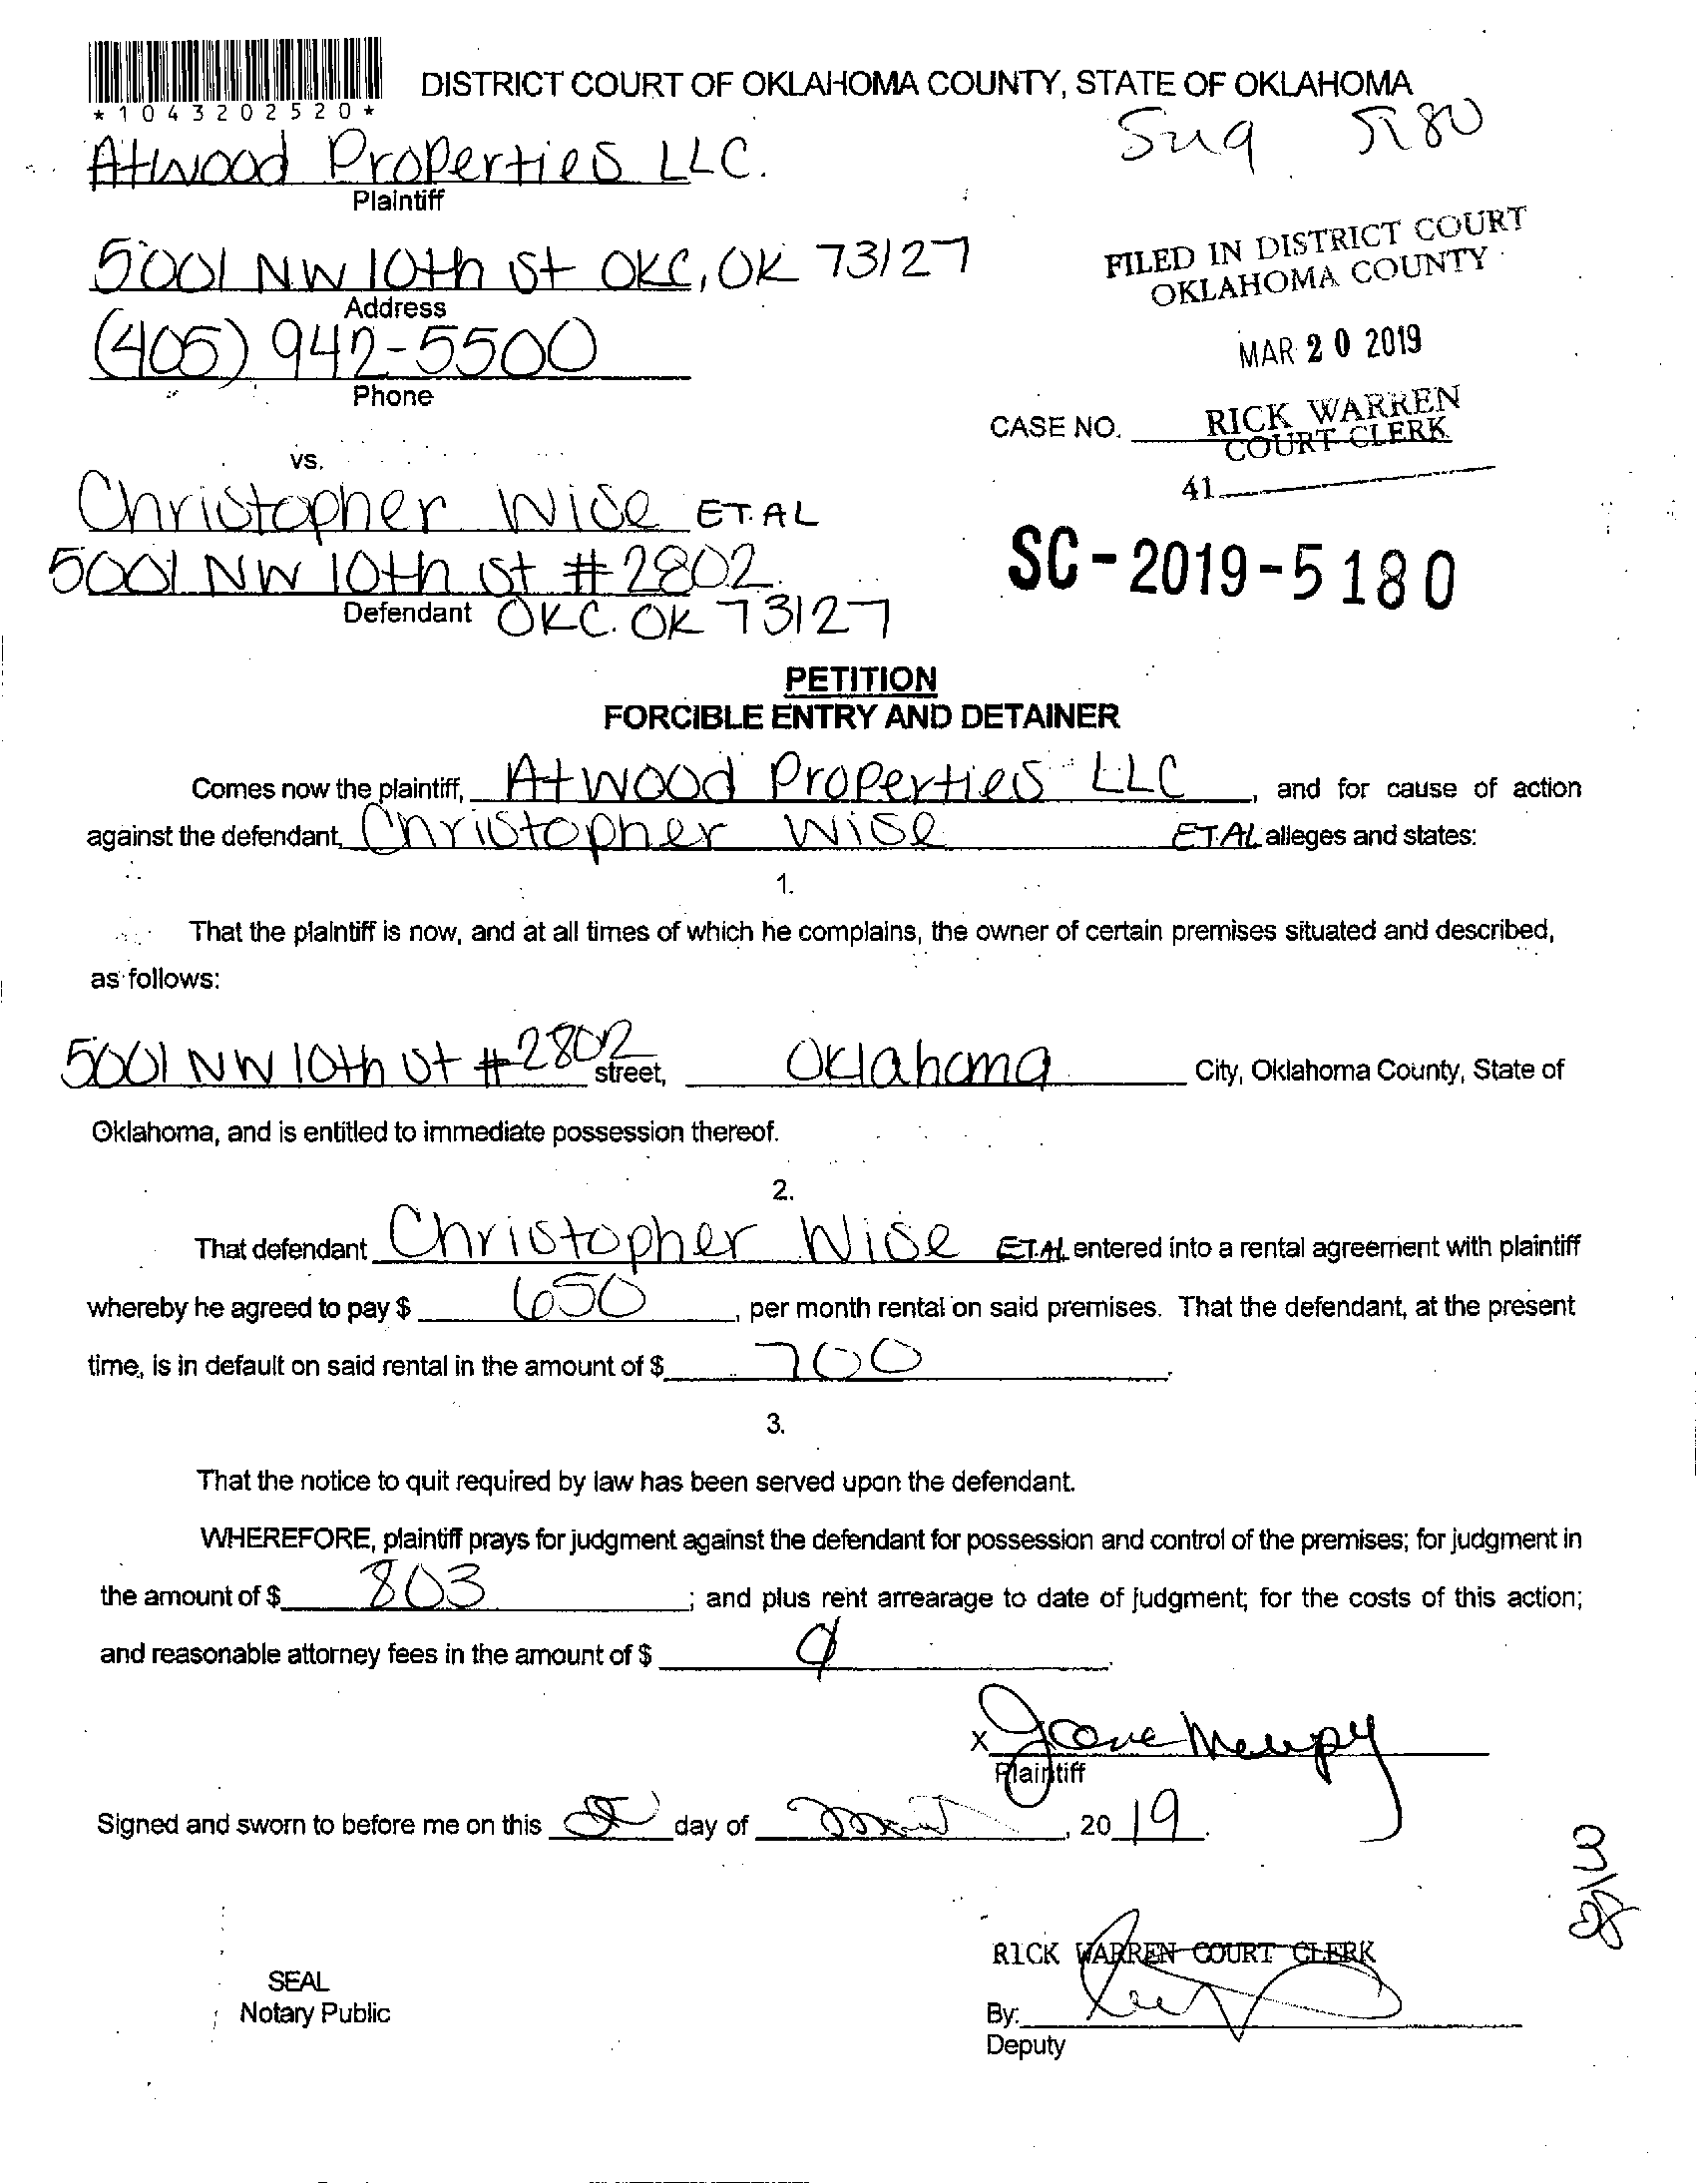 *1043202520*
DISTRICT COURT OF OKLAHOMA COUNTY, STATE OF OKLAHOMA
Atwood Properties LLC.
Plaintiff
5001 NW 10th St OKC, OK 73127
Address
(405) 942-5500
Phone
FILED IN DISTRICT COURT
OKLAHOMA COUNTY
MAR 20 2019
RICK WARREN
COURT CLERK
CASE NO.
41
vs.
Christopher Wise ET.AL
5001 NW 10th St #2802
Defendant OKC. OK 73127
SC-2019-5180
PETITION
FORCIBLE ENTRY AND DETAINER
Comes now the plaintiff, Atwood Properties LLC, and for cause of action
against the defendant, Christopher Wise ET.AL alleges and states:
1.
That the plaintiff is now, and at all times of which he complains, the owner of certain premises situated and described,
as follows:
5001 NW 10th St #2802 street, Oklahoma City, Oklahoma County, State of
Oklahoma, and is entitled to immediate possession thereof.
2.
That defendant Christopher Wise ET.AL entered into a rental agreement with plaintiff
whereby he agreed to pay $ 650, per month rental on said premises. That the defendant, at the present
time, is in default on said rental in the amount of $ 700.
3.
That the notice to quit required by law has been served upon the defendant.
WHEREFORE, plaintiff prays for judgment against the defendant for possession and control of the premises; for judgment in
the amount of $ 803; and plus rent arrearage to date of judgment; for the costs of this action;
and reasonable attorney fees in the amount of $
X
Plaintiff
Signed and sworn to before me on this day of , 20 19.
RICK WARREN COURT CLERK
SEAL
Notary Public
By:
Deputy